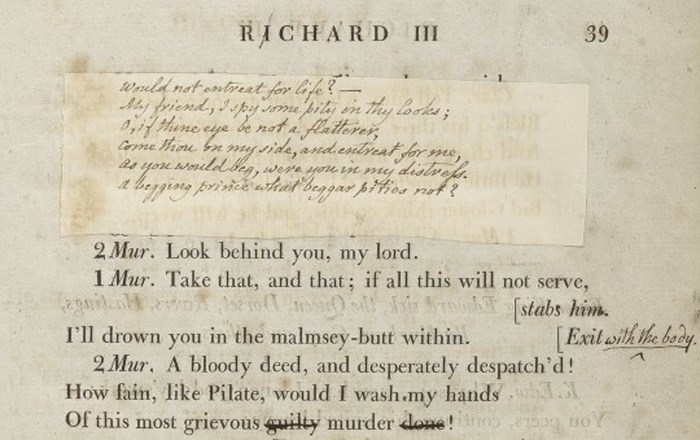 RICHARD III 39
would not entreat for life? —
My friend, I spy some pity in thy looks;
O, if thine eye be not a flatterer,
come thou on my side, and entreat for me,
as you would beg, were you in my distress.
a begging prince what beggar pities not?
2 Mur. Look behind you, my lord.
1 Mur. Take that, and that; if all this will not serve,
[stabs him.
I'll drown you in the malmsey-butt within. [Exit with the body.
2 Mur. A bloody deed, and desperately despatch'd!
How fain, like Pilate, would I wash my hands
Of this most grievous guilty murder done!